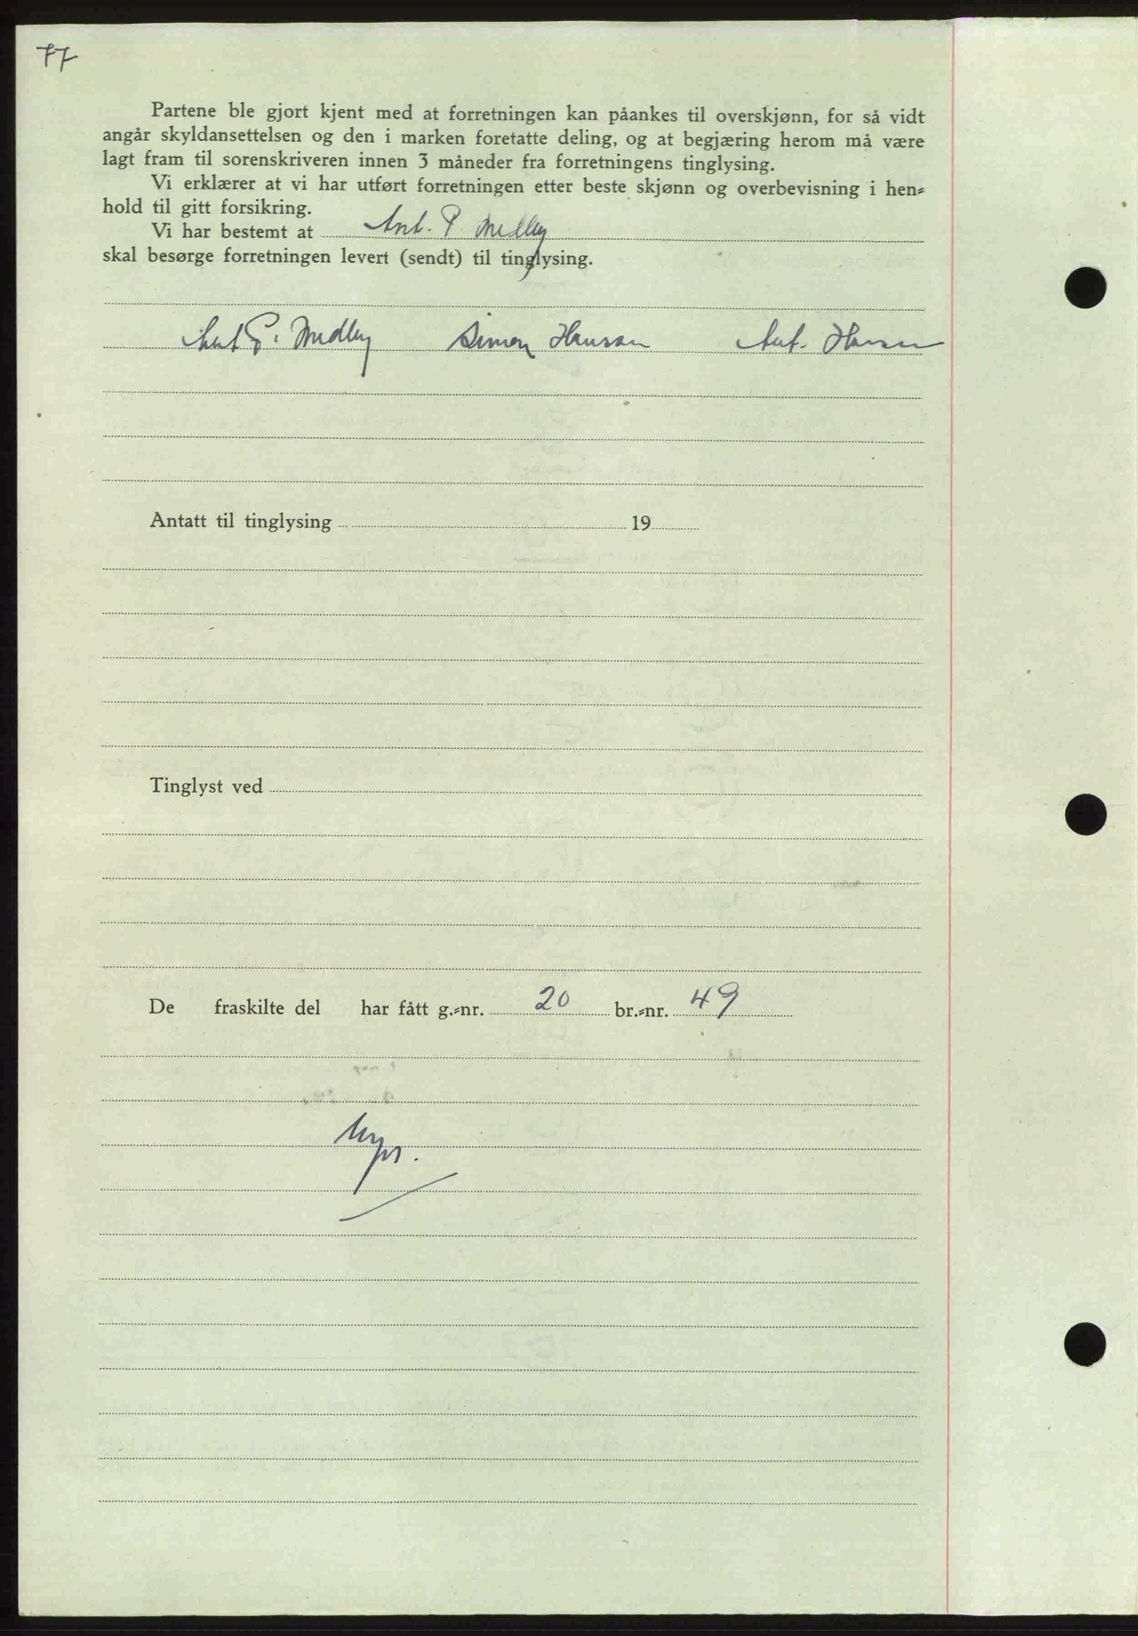 77
Partene ble gjort kjent med at forretningen kan påankes til overskjønn, for så vidt
angår skyldansettelsen og den i marken foretatte deling, og at begjæring herom må være
lagt fram til sorenskriveren innen 3 måneder fra forretningens tinglysing.
Vi erklærer at vi har utført forretningen etter beste skjønn og overbevisning i hen-
hold til gitt forsikring.
Vi har bestemt at Ant. P. Medby
skal besørge forretningen levert (sendt) til tinglysing.
Ant P. Medby Simon Hansen Ant. Hansen
Antatt til tinglysing 19
Tinglyst ved
De fraskilte del har fått g.-nr. 20 br.-nr. 49